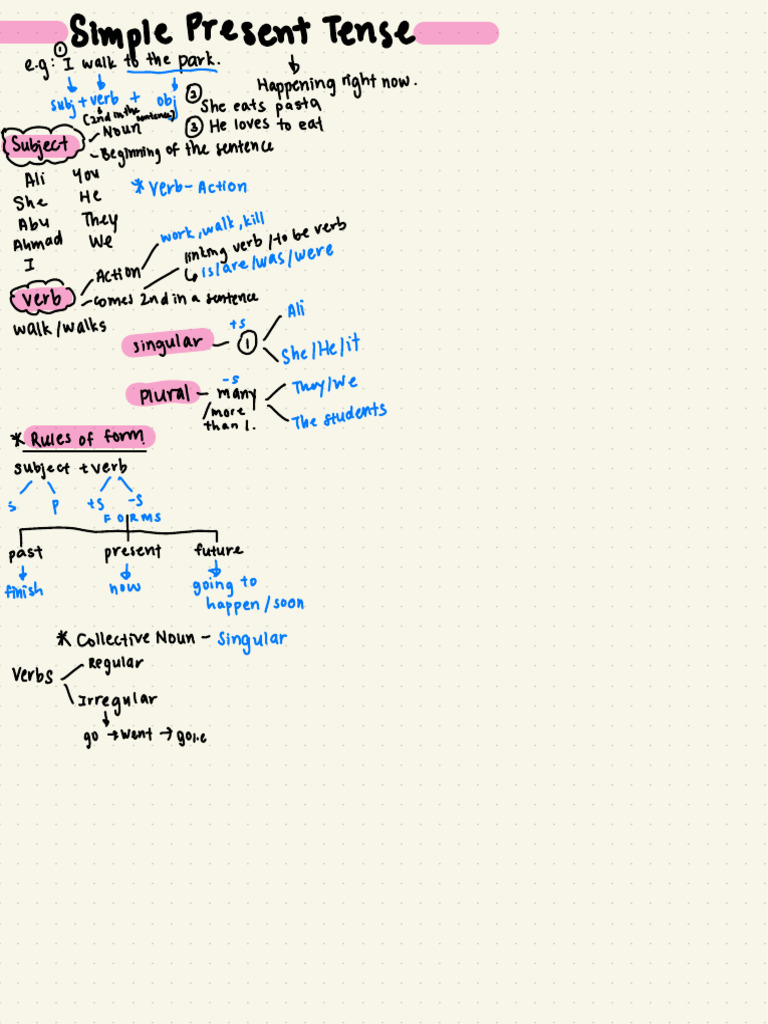 Simple Present Tense
① e.g: I walk to the park.
Happening right now.
subj + verb + obj
(2nd in the sentence)
② She eats pasta
③ He loves to eat
Subject
- Noun
- Beginning of the sentence
Ali You
She He
Abu They
Ahmad We
I
* Verb - Action
Verb
- Action
work, walk, kill
- comes 2nd in a sentence
linking verb / to be verb
↳ is/are/was/were
walk/walks
singular - ①
+s
Ali
She/He/it
plural - many
-s
/more than 1.
They/We
The students
* Rules of form
subject + verb
s p +s -s
FORMS
past present future
finish now going to happen/soon
* Collective Noun - Singular
Verbs
Regular
Irregular
go → went → gone